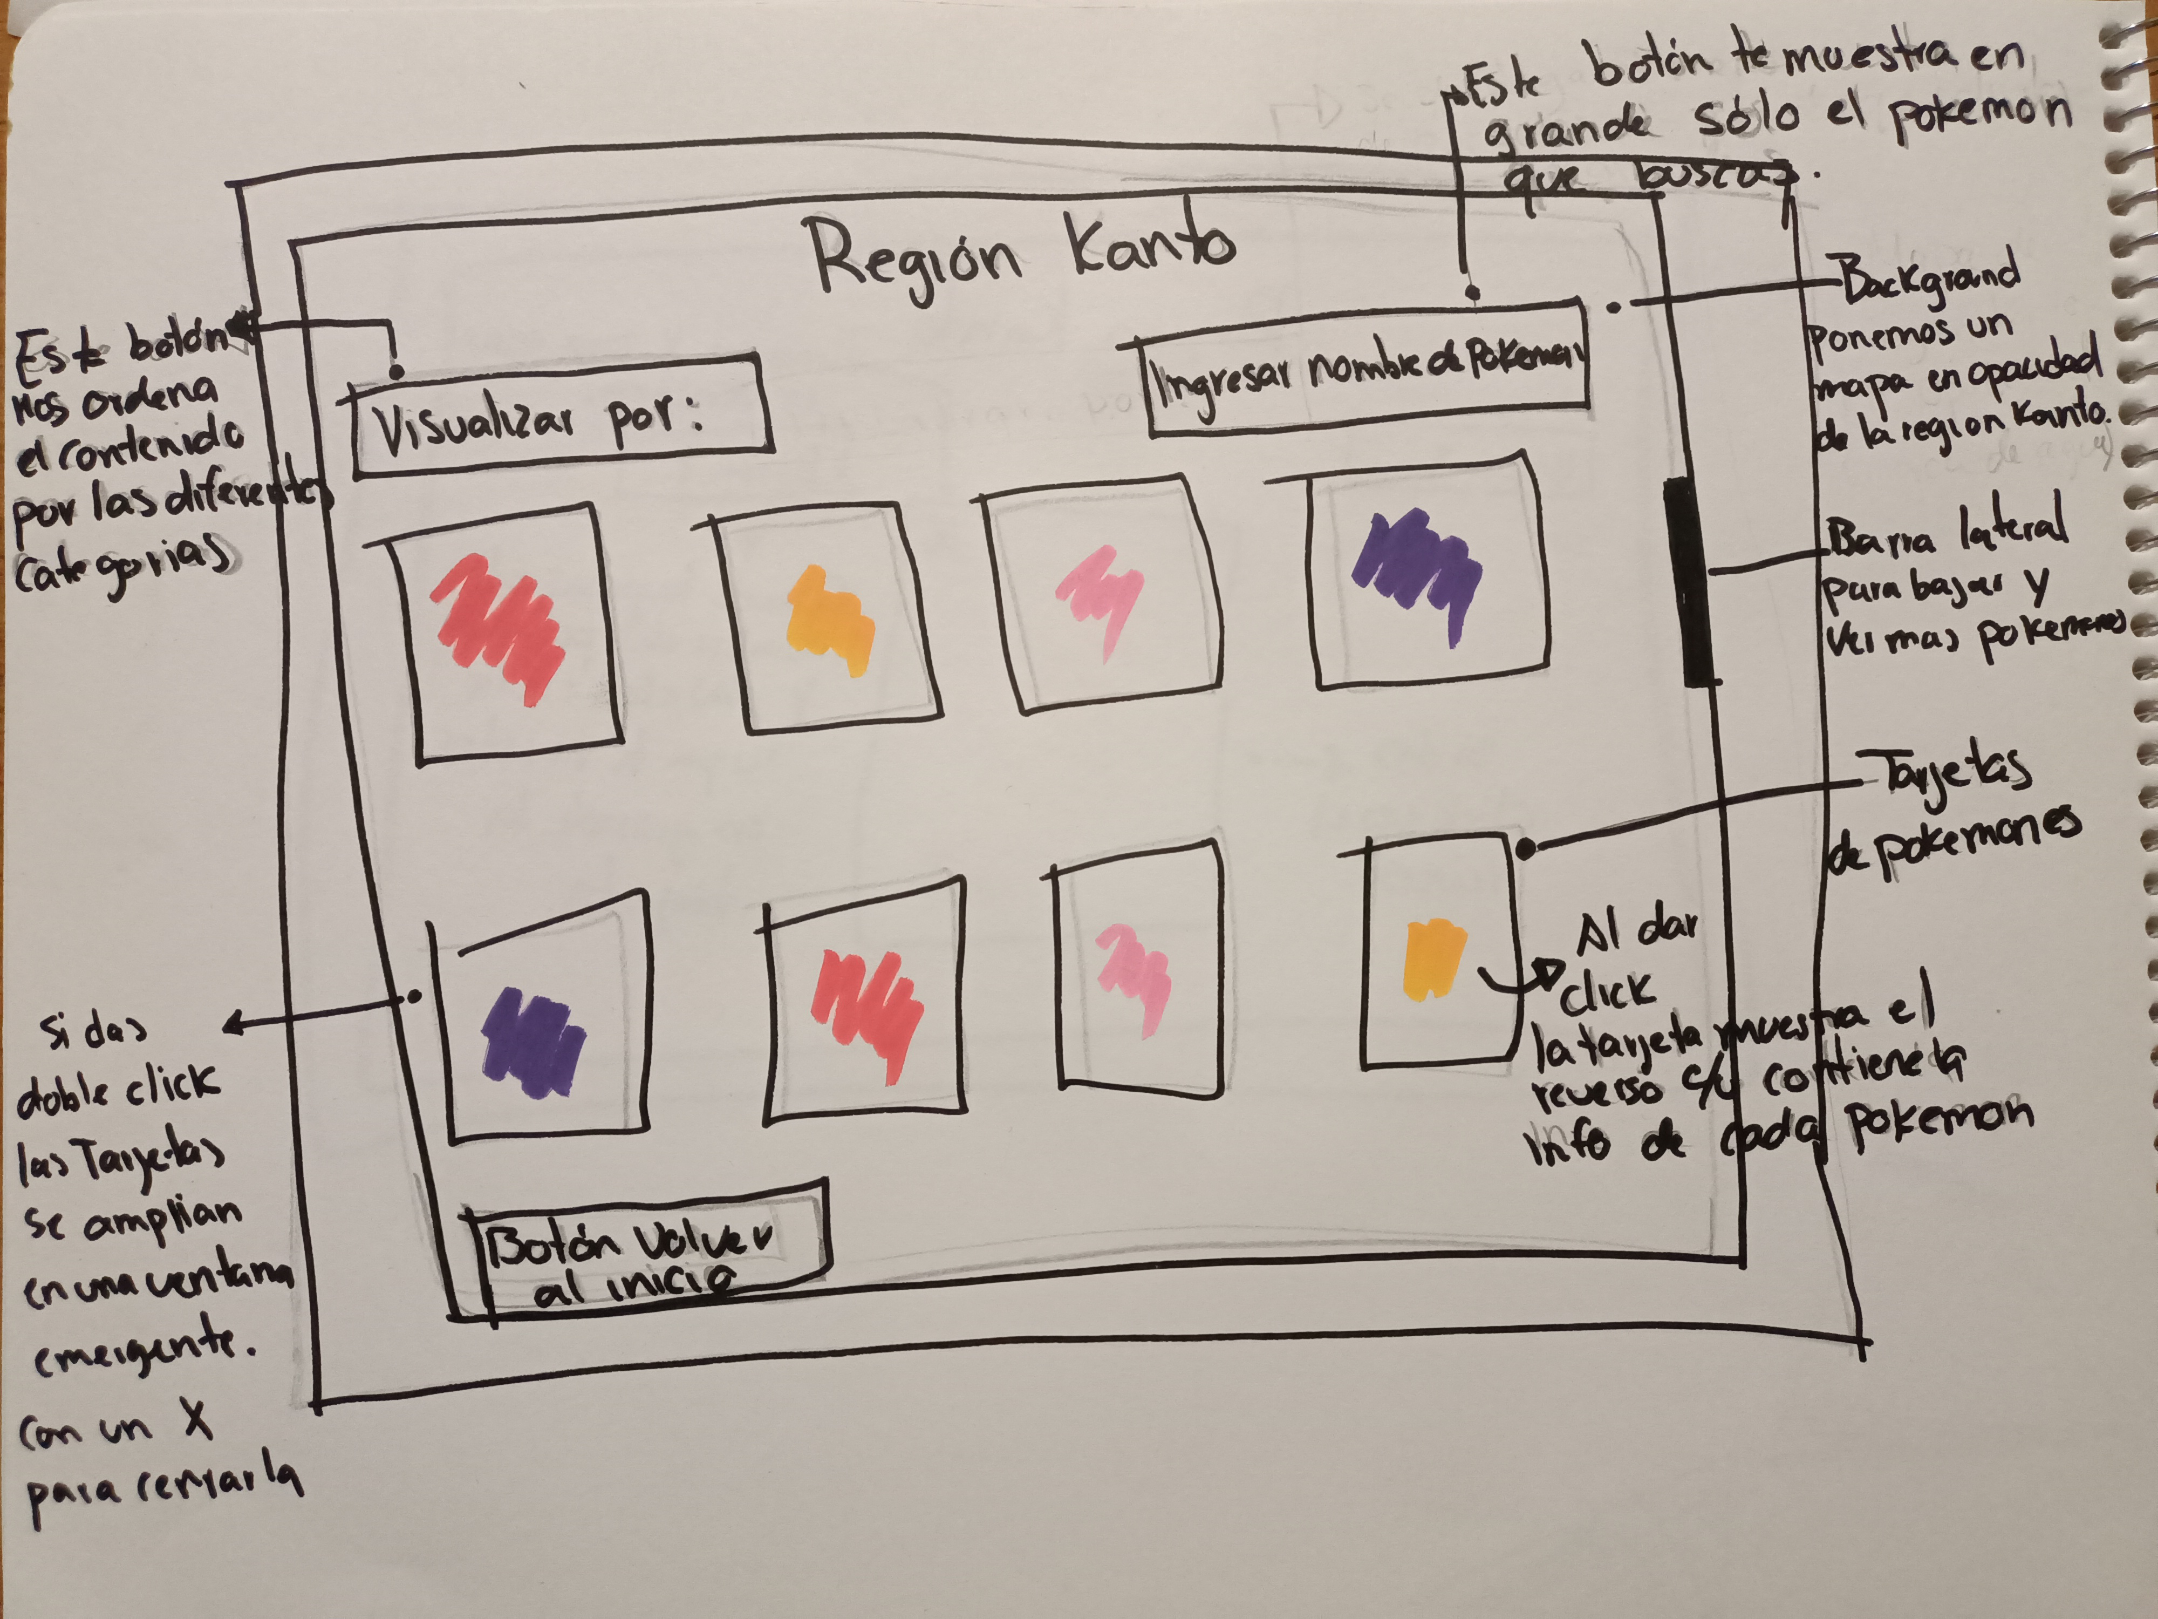 Este botón te muestra en
grande sólo el pokemon
que buscas.
Región Kanto
Este botón
nos ordena
el contenido
por las diferentes
categorias
Visualizar por:
Ingresar nombre de Pokemon
Backgrand
ponemos un
mapa en opacidad
de la region Kanto.
Barra lateral
para bajar y
ver mas pokemones
Tarjetas
de pokemones
Al dar
click
la tarjeta muestra el
reverso c/u contiene la
info de cada pokemon
Si das
doble click
las Tarjetas
se amplian
en una ventana
emergente.
con un X
para cerrarla
Botón Volver
al inicio